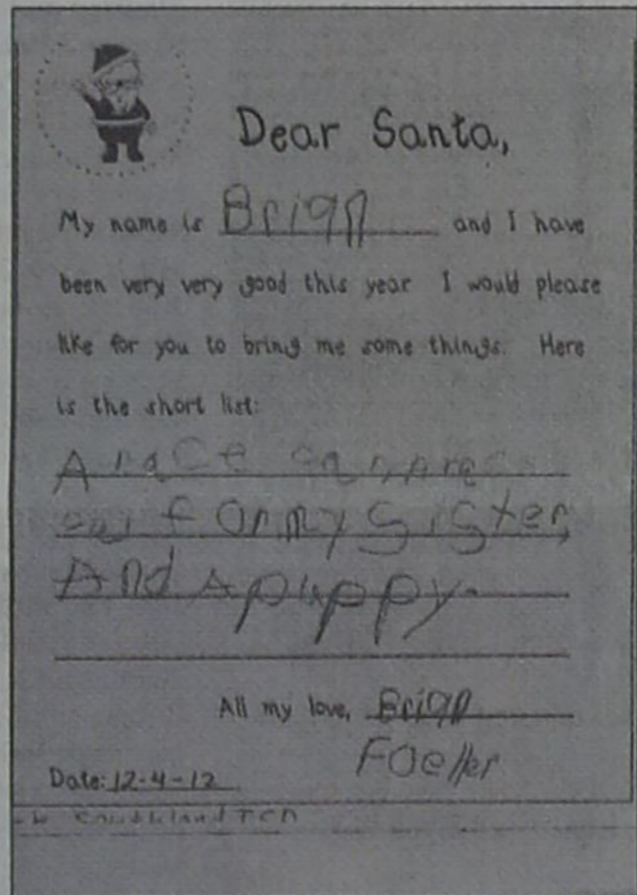 Dear Santa,
My name is Brian and I have
been very very good this year I would please
like for you to bring me some things. Here
is the short list:
A race car,
for my sister,
And A puppy.
All my love, Brian
Foeller
Date: 12-4-12